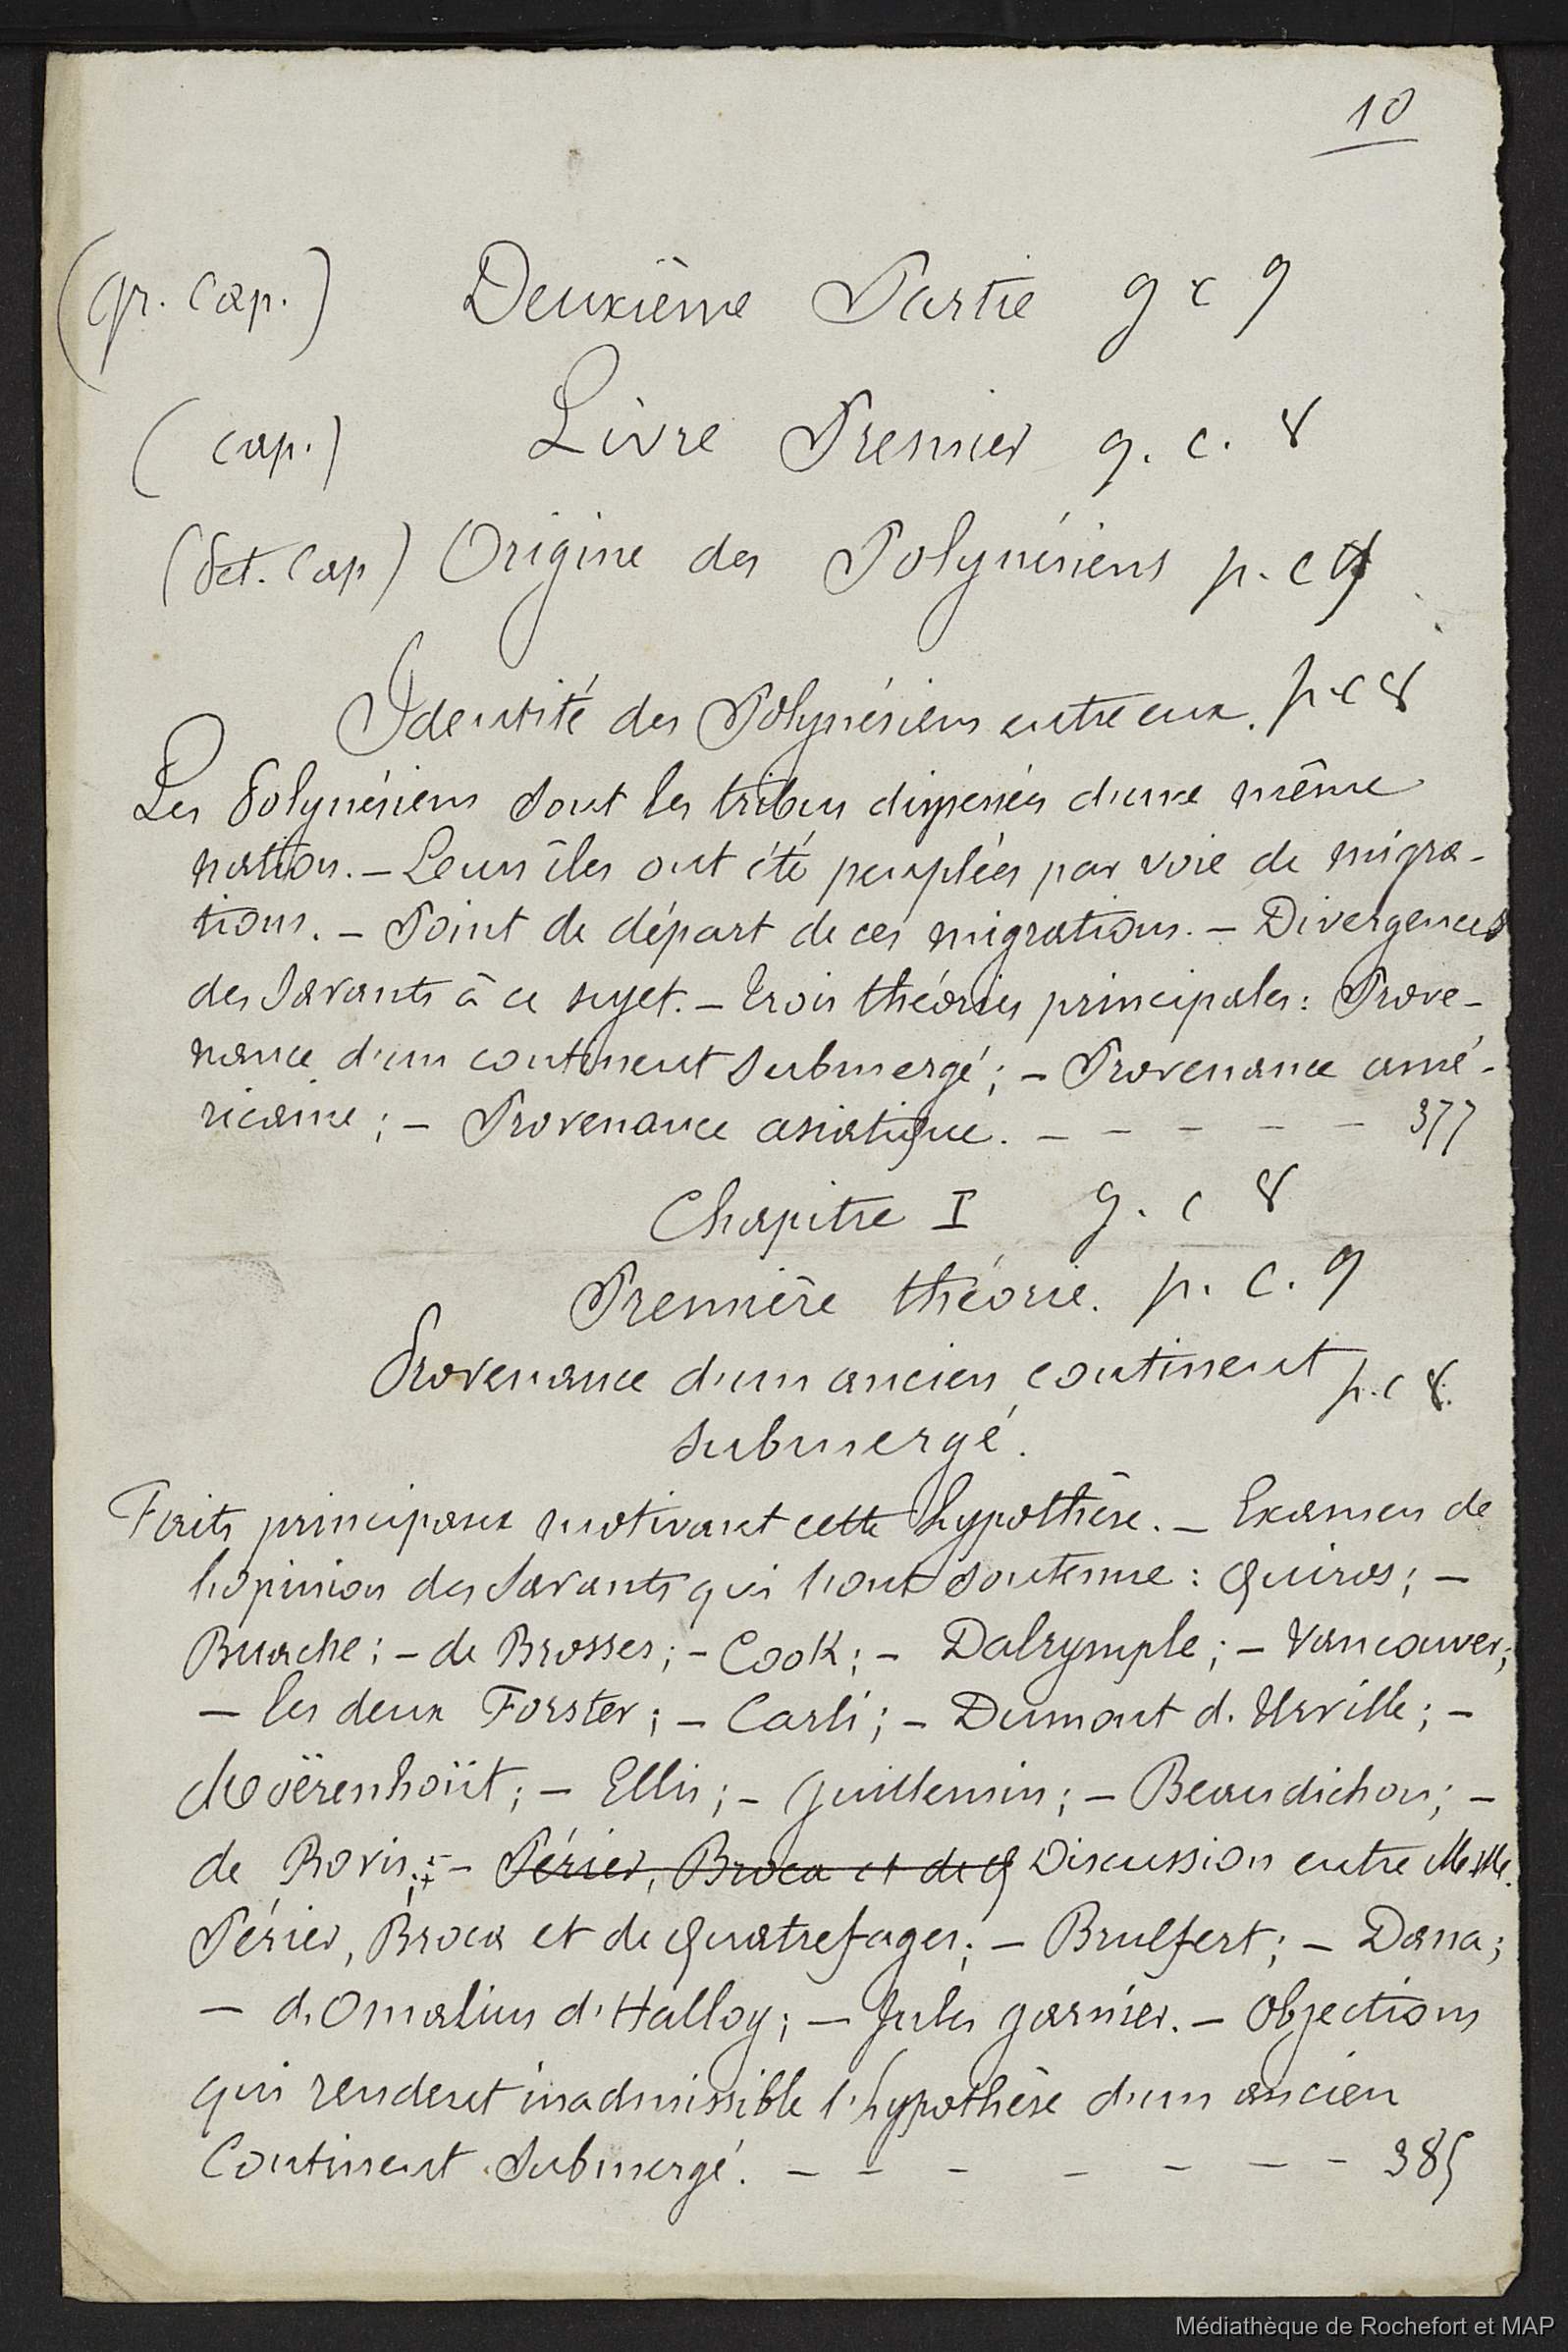 10
(gr. cap.) Deuxième Partie g c 9
(cap.) Livre Premier g. c. 8
(pet. cap) Origine des Polynésiens p. c 9
Identité des Polynésiens entre eux. p. c 8
Les Polynésiens sont les tribus dispersées d'une même
nation. — Leurs îles ont été peuplées par voie de migra-
tions. — Point de départ de ces migrations. — Divergences
des savants à ce sujet. — Trois théories principales : Prove-
nance d'un continent submergé ; — Provenance amé-
ricaine ; — Provenance asiatique. — — — — — 377
Chapitre I g. c 8
Première théorie. p. c. 9
Provenance d'un ancien continent p. c 8.
submergé.
Faits principaux motivant cette hypothèse. — Examen de
l'opinion des savants qui l'ont soutenue : Quiros ; —
Buache ; — de Brosses ; — Cook ; — Dalrymple ; — Vancouver ;
— les deux Forster ; — Carli ; — Dumont d'Urville ; —
Moërenhoüt ; — Ellis ; — Guillemin ; — Beaudichon ; —
de Bovis ; — Périer, Broca et de Q Discussion entre MM.
Périer, Broca et de Quatrefages ; — Brulfert ; — Dana ;
— d'Omalius d'Halloy ; — Jules Garnier. — Objections
qui rendent inadmissible l'hypothèse d'un ancien
Continent submergé. — — — — — — — 385
Médiathèque de Rochefort et MAP